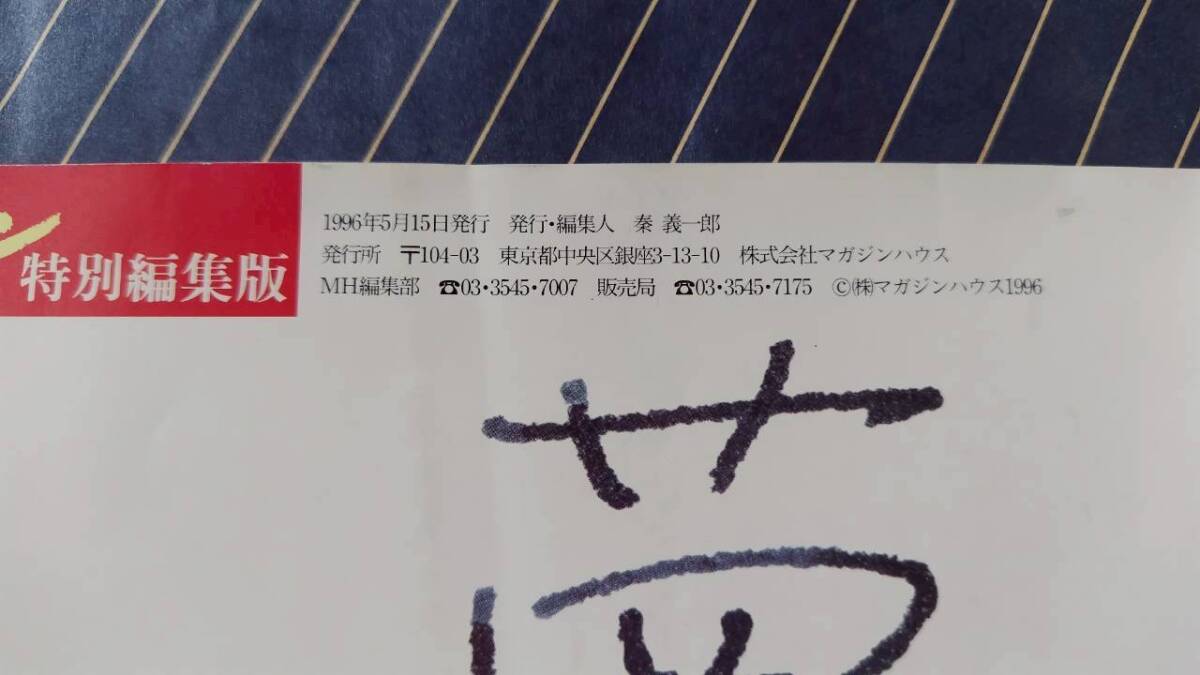 特別編集版
1996年5月15日発行 発行・編集人 秦 義一郎
発行所 〒104-03 東京都中央区銀座3-13-10 株式会社マガジンハウス
MH編集部 ☎03・3545・7007 販売局 ☎03・3545・7175 Ⓒ㈱マガジンハウス1996